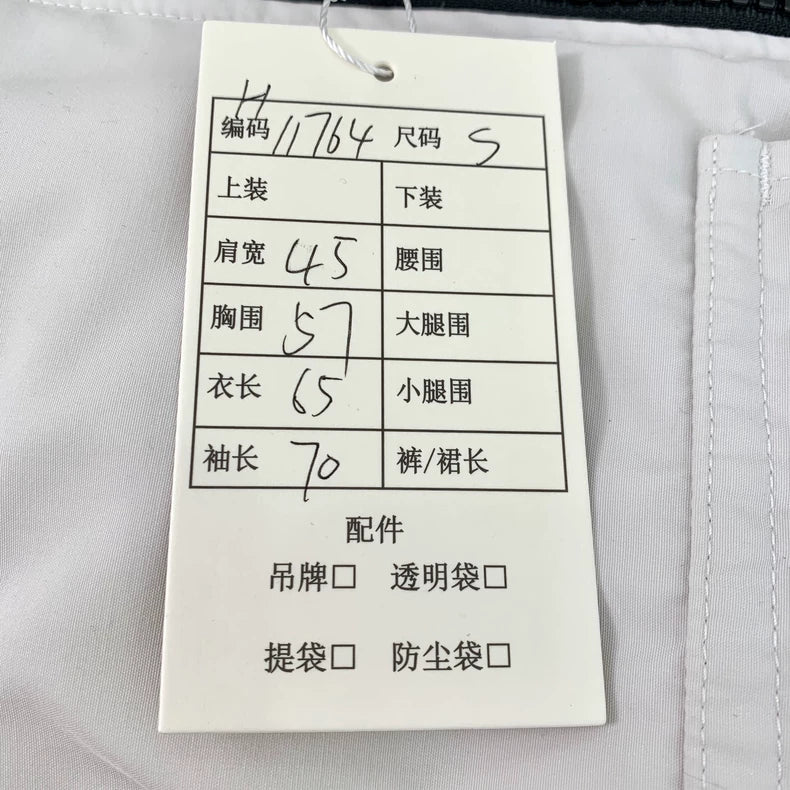 H
编码 11764 尺码 S
上装 下装
肩宽 45 腰围
胸围 57 大腿围
衣长 65 小腿围
袖长 70 裤/裙长
配件
吊牌□ 透明袋□
提袋□ 防尘袋□